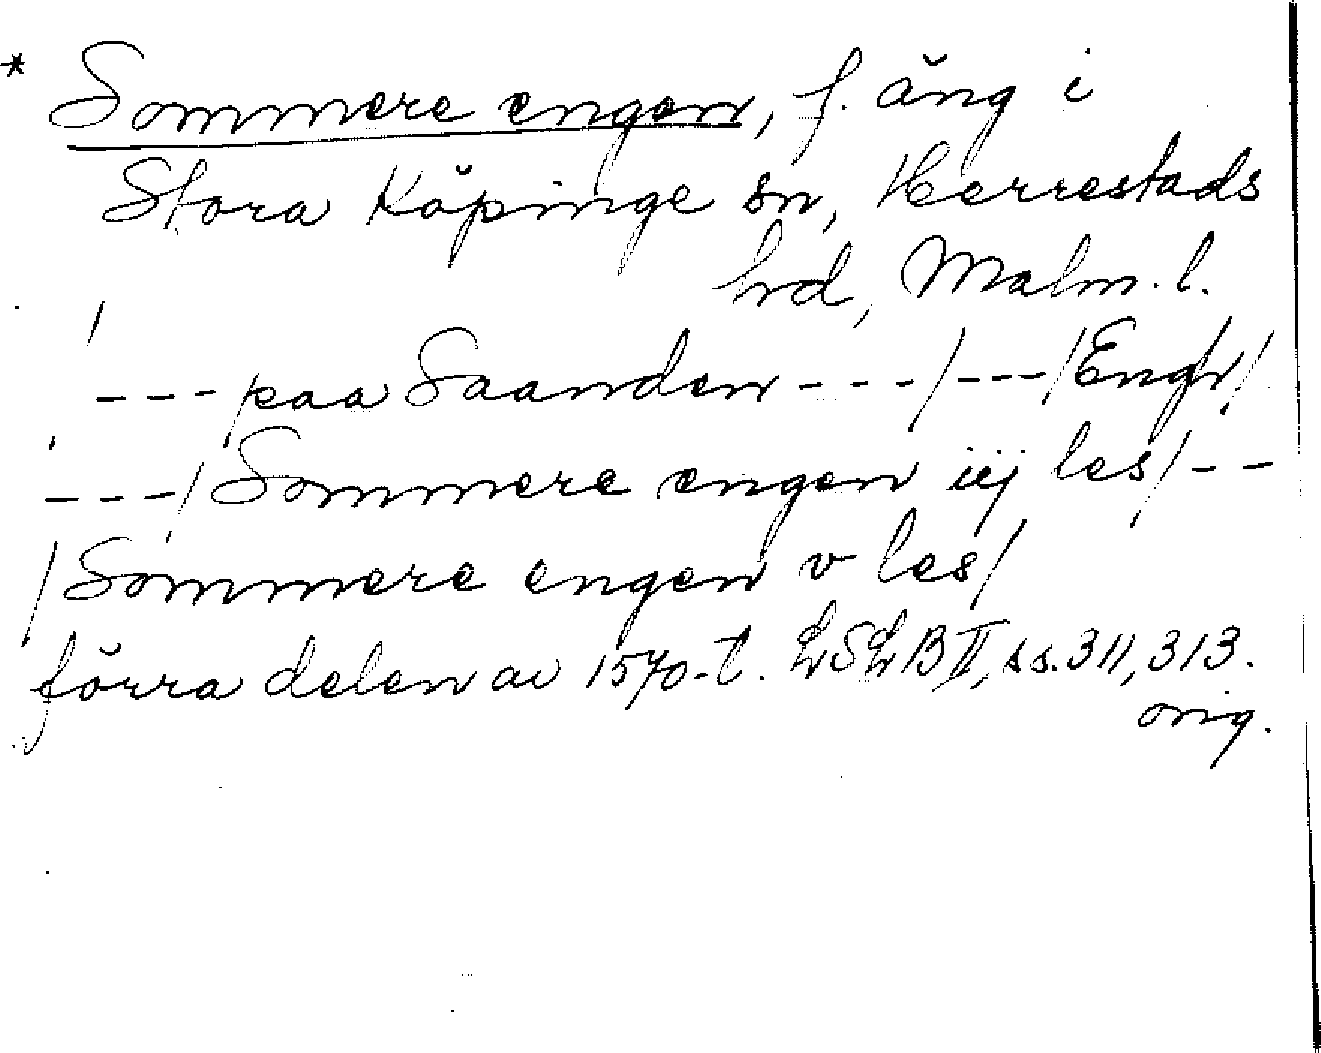 * Sommere engen, f. äng i
Stora Köpinge sn, Herrestads
hrd, Malm. l.
--- /paa Saanden ---/---/Engh/
---/Sommere engen iij les/--
/Sommere engen v les/
förra delen av 1570-t. LSLB II, ss. 311, 313.
orig.